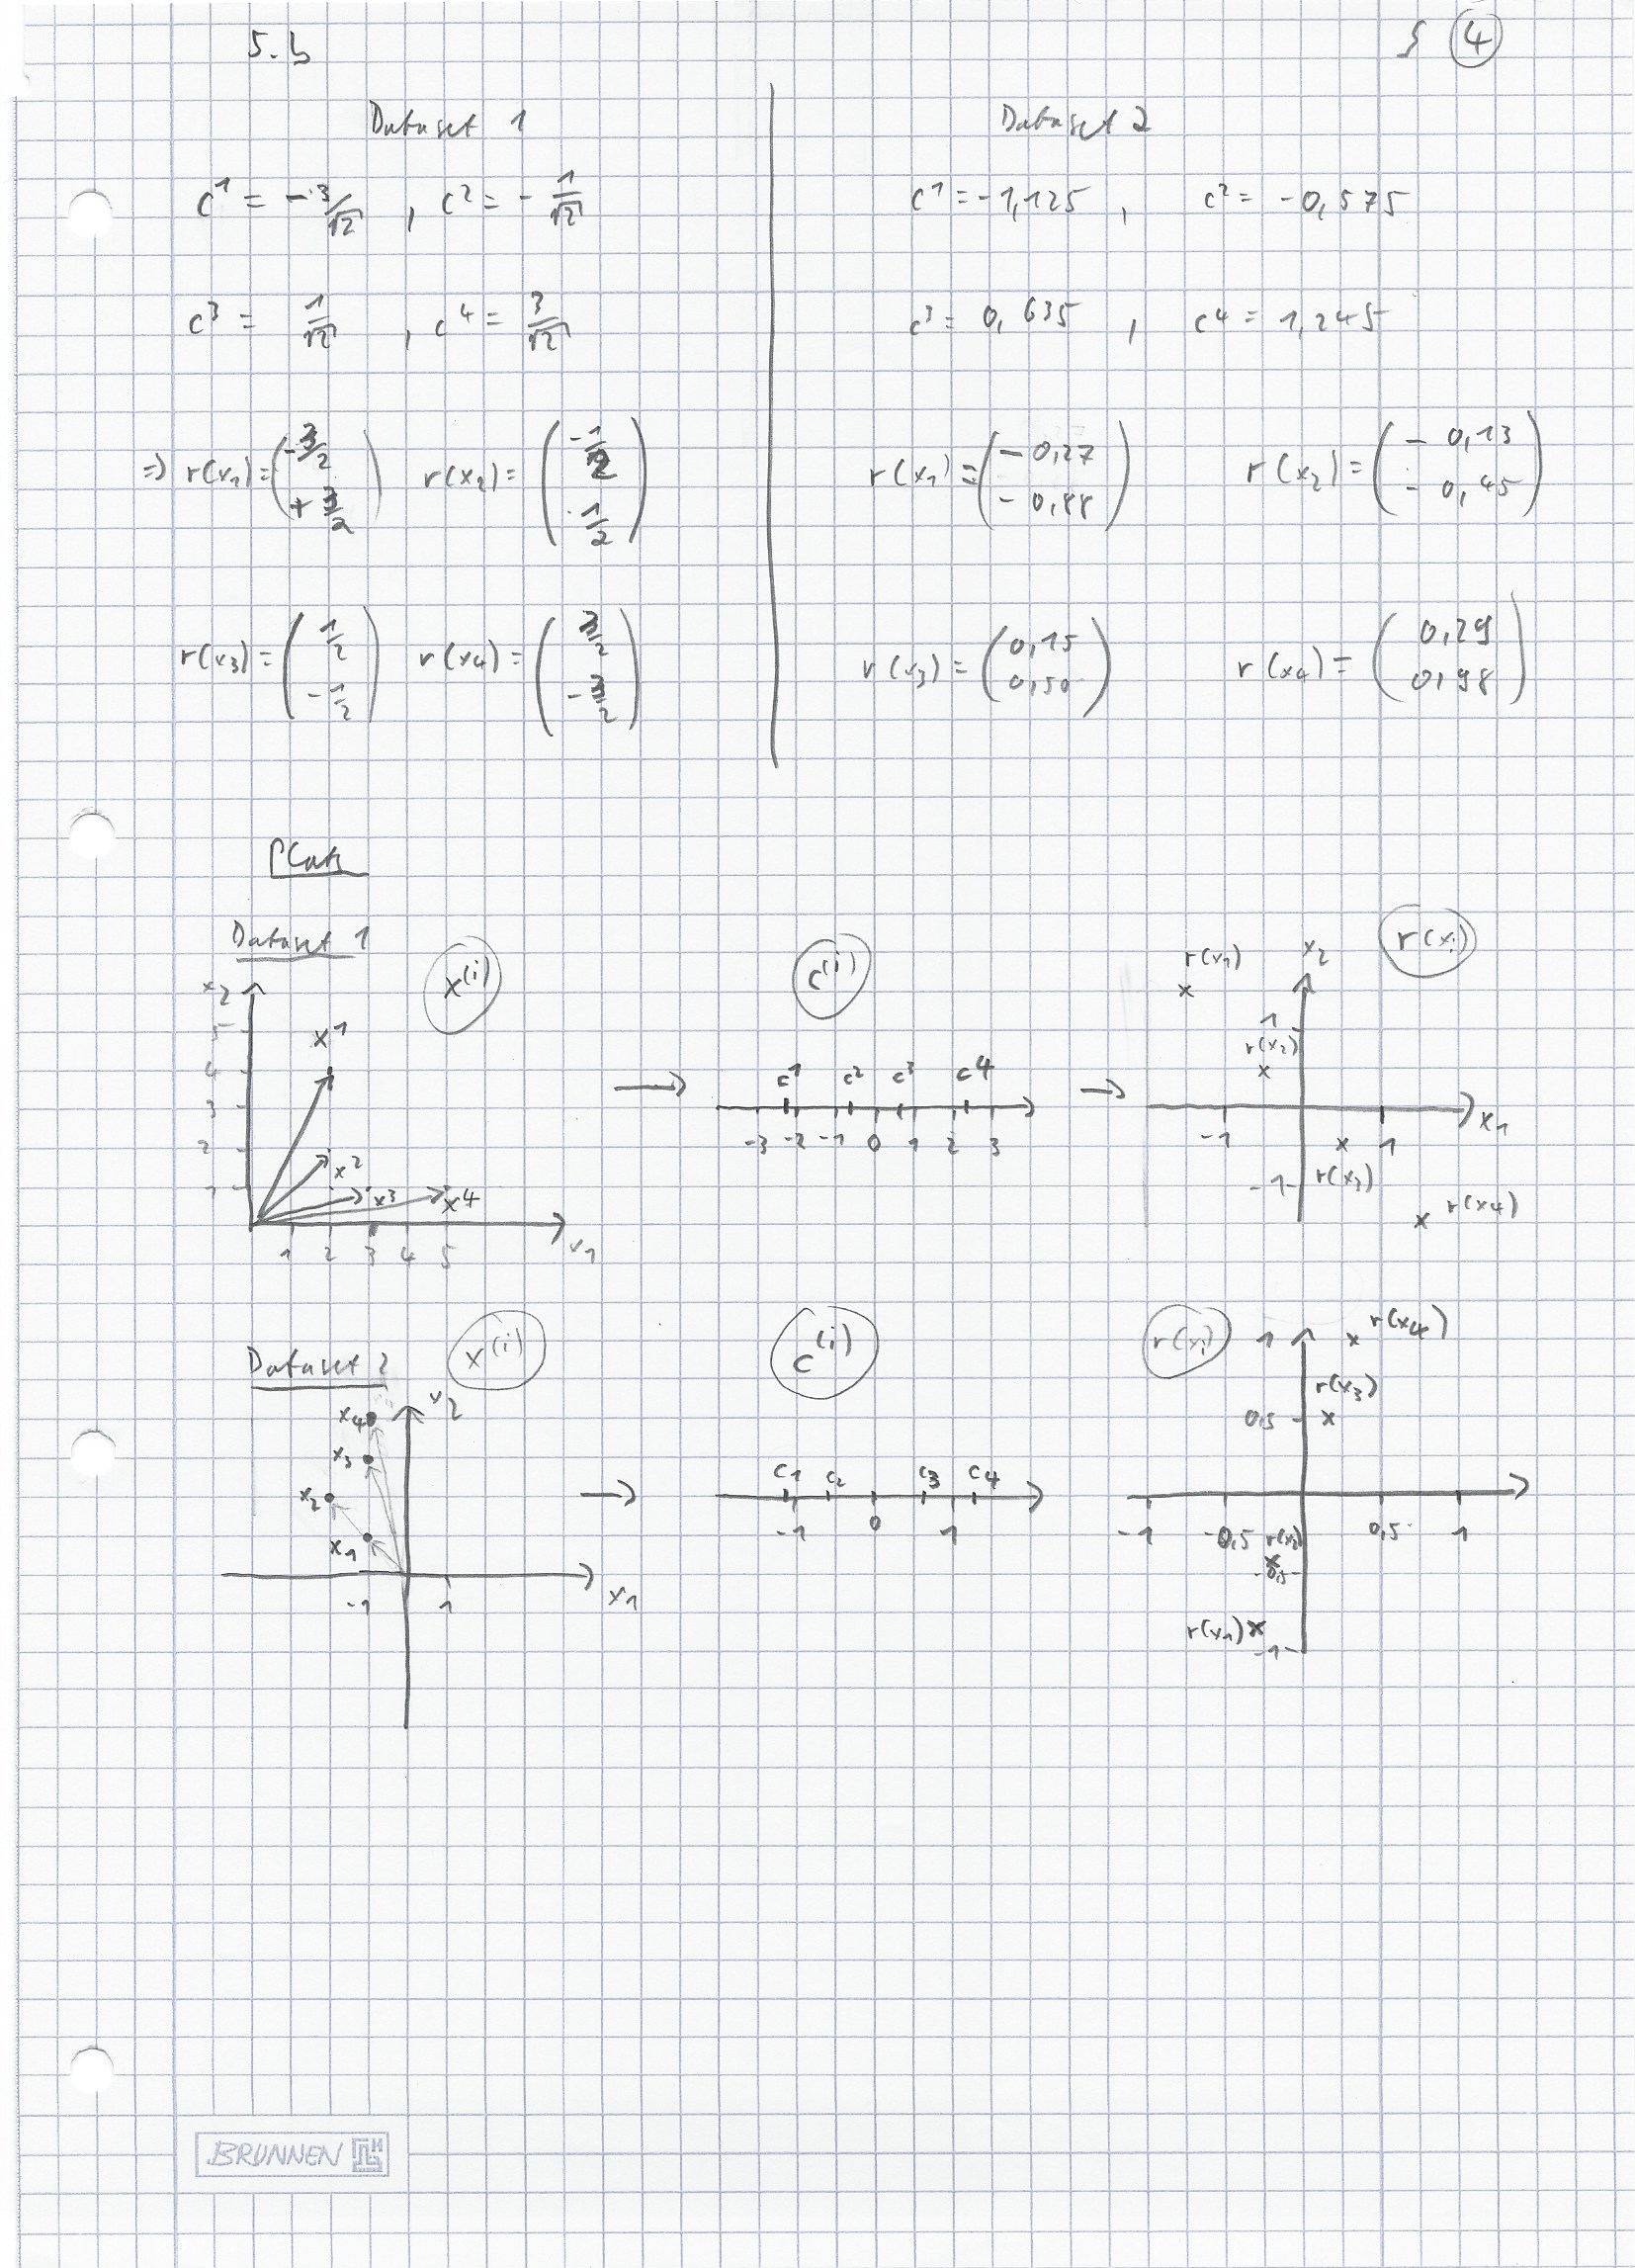 5.b ④
Dataset 1
c¹ = -3/√2 , c² = -1/√2
c³ = 1/√2 , c⁴ = 3/√2
⇒ r(x₁) = (-3/2 +3/2) r(x₂) = (-1/2 1/2)
r(x₃) = (1/2 -1/2) r(x₄) = (3/2 -3/2)
Dataset 2
c¹ = -1,125 , c² = -0,575
c³ = 0,635 , c⁴ = 1,245
r(x₁) = (-0,27 -0,88) r(x₂) = (-0,13 -0,45)
r(x₃) = (0,15 0,50) r(x₄) = (0,29 0,98)
Plots
Dataset 1
x⁽ⁱ⁾
x₂
5
4
3
2
1
x¹
x²
x³ x⁴
1 2 3 4 5
x₁
→
c⁽ⁱ⁾
c¹ c² c³ c⁴
-3 -2 -1 0 1 2 3
→
r(xᵢ)
r(x₁) x₂
1
r(x₂)
-1 1 x₁
-1 r(x₃)
r(x₄)
Dataset 2
x⁽ⁱ⁾
x₂
x₄
x₃
x₂
x₁
-1 1 x₁
→
c⁽ⁱ⁾
c₁ c₂ c₃ c₄
-1 0 1
r(xᵢ)
1 r(x₄)
r(x₃)
0,5
-1 -0,5 r(x₂) 0,5 1
-0,5
r(x₁)
-1
BRUNNEN